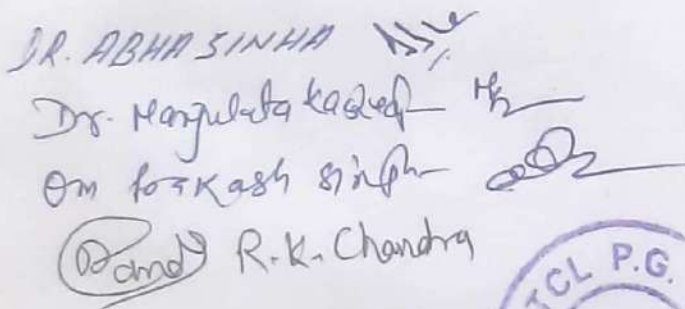 DR. ABHA SINHA
Dr. Manjulata
Om Prakash Singh
R.K. Chandra
TCL P.G.